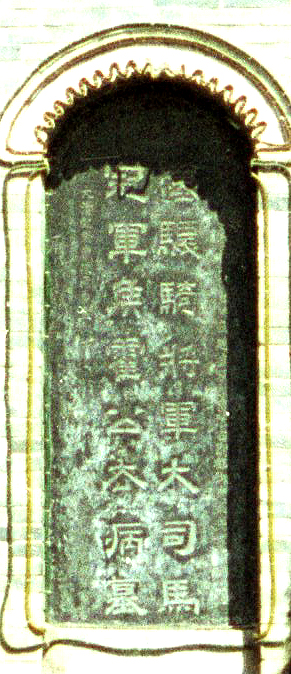 漢驃騎將軍大司馬
冠軍侯霍公去病墓